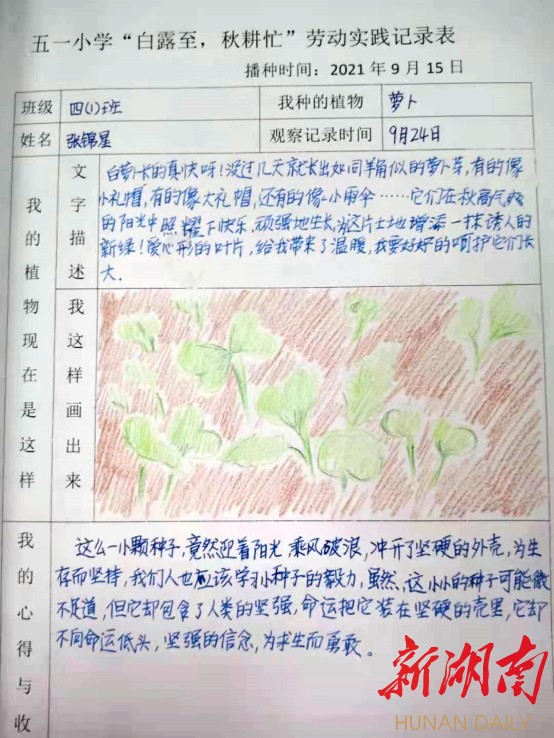 五一小学“白露至，秋耕忙”劳动实践记录表
播种时间：2021年9月15日
班级 四(1)班 我种的植物 萝卜
姓名 张锦星 观察记录时间 9月24日
我的植物现在是这样
文字描述
白萝卜长的真快呀！没过几天就长出如同羊角似的萝卜芽，有的像
小礼帽，有的像大礼帽，还有的像小雨伞……它们在秋高气爽
的阳光中照耀下快乐，顽强地生长，为这片土地增添一抹诱人的
新绿！爱心形的叶片，给我带来了温暖，我要好好的呵护它们长
大.
我这样画出来
我的心得与收
这么一小颗种子，竟然迎着阳光乘风破浪，冲开了坚硬的外壳，为生
存而坚持，我们人也应该学习小种子的毅力，虽然，这小小的种子可能微
不足道，但它却包含了人类的坚强，命运把它装在坚硬的壳里，它却
不向命运低头，坚强的信念，为求生而勇敢。
新湖南
HUNAN DAILY